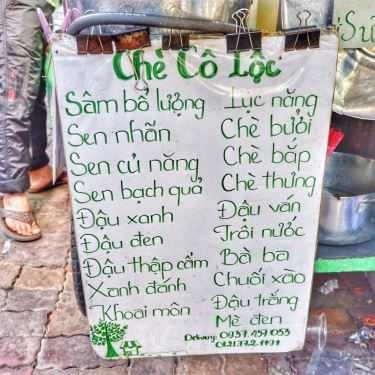 Chè Cô Lộc
Sâm bổ lượng
Sen nhãn
Sen củ năng
Sen bạch quả
Đậu xanh
Đậu đen
Đậu thập cẩm
Xanh đánh
Khoai môn
Lục năng
Chè bưởi
Chè bắp
Chè thưng
Đậu ván
Trôi nước
Bà ba
Chuối xào
Đậu trắng
Mè đen
Delivery: 0937.457.053